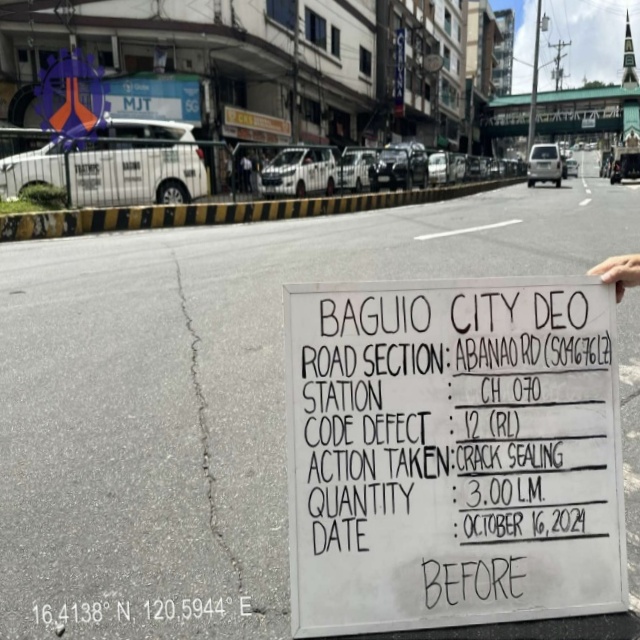 MJT
BAGUIO CITY DEO
ROAD SECTION: ABANAO RD (S04676LZ)
STATION : CH 070
CODE DEFECT : 12 (RL)
ACTION TAKEN: CRACK SEALING
QUANTITY : 3.00 L.M.
DATE : OCTOBER 16, 2024
BEFORE
16,4138° N, 120,5944° E